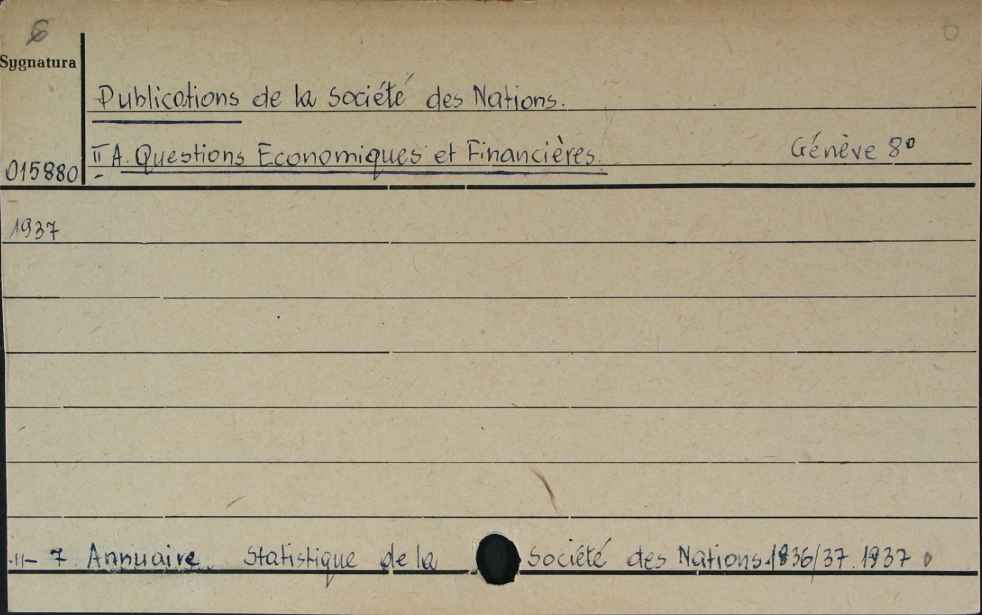 6
Sygnatura
Publications de la Société des Nations.
015880 II A. Questions Economiques et Financières. Génève 8º
1937
-II- 7 Annuaire Statistique de la Société des Nations 1836/37. 1937